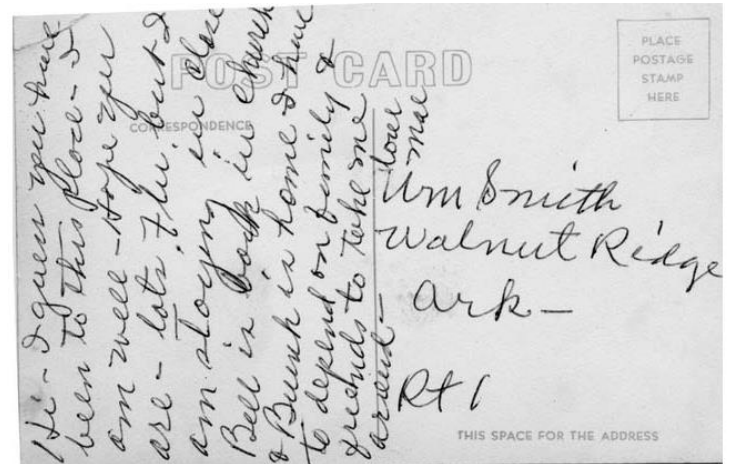 POST CARD
CORRESPONDENCE
PLACE
POSTAGE
STAMP
HERE
Hi - I guess you have
been to this place - I
am well - Hope you
are - lots flu but I
am staying in close
Bell is back in church
& Bush in home I have
to depend on family &
friends to take me
around -
love
Mae
Wm Smith
Walnut Ridge
Ark -
Rt 1
THIS SPACE FOR THE ADDRESS